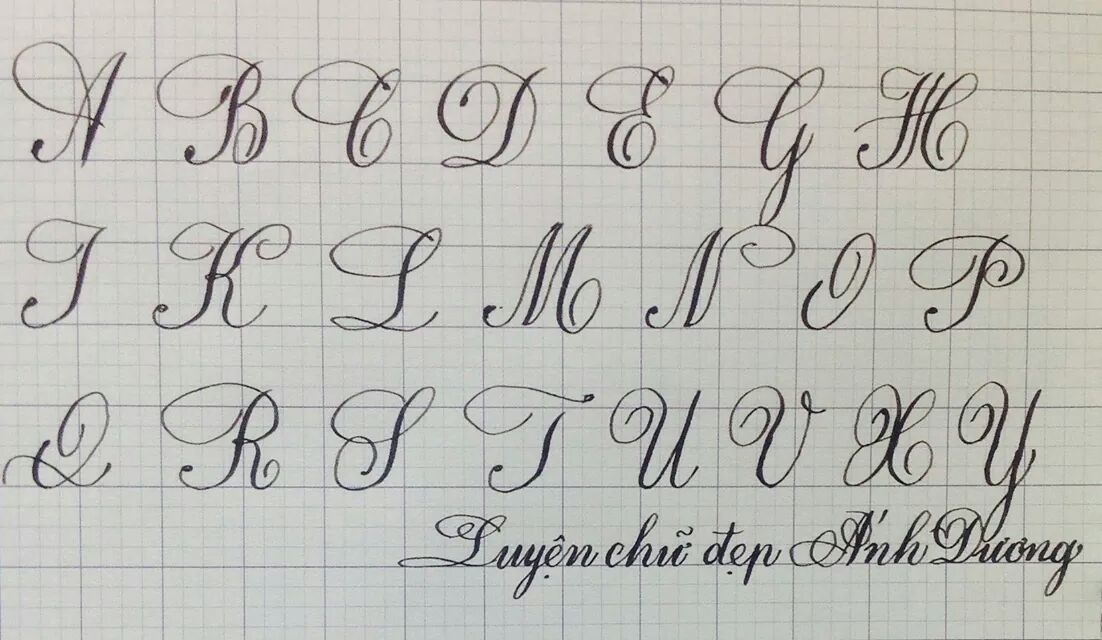 A B C D E G H
I K L M N O P
Q R S T U V X Y
Luyện chữ đẹp Ánh Dương